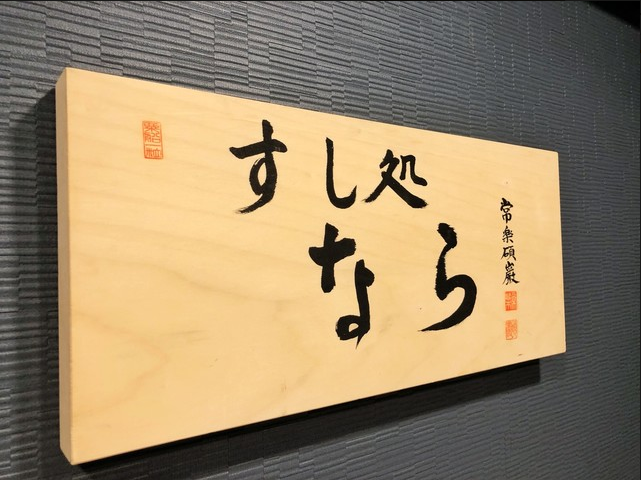 すし処
なら
常楽碩巌